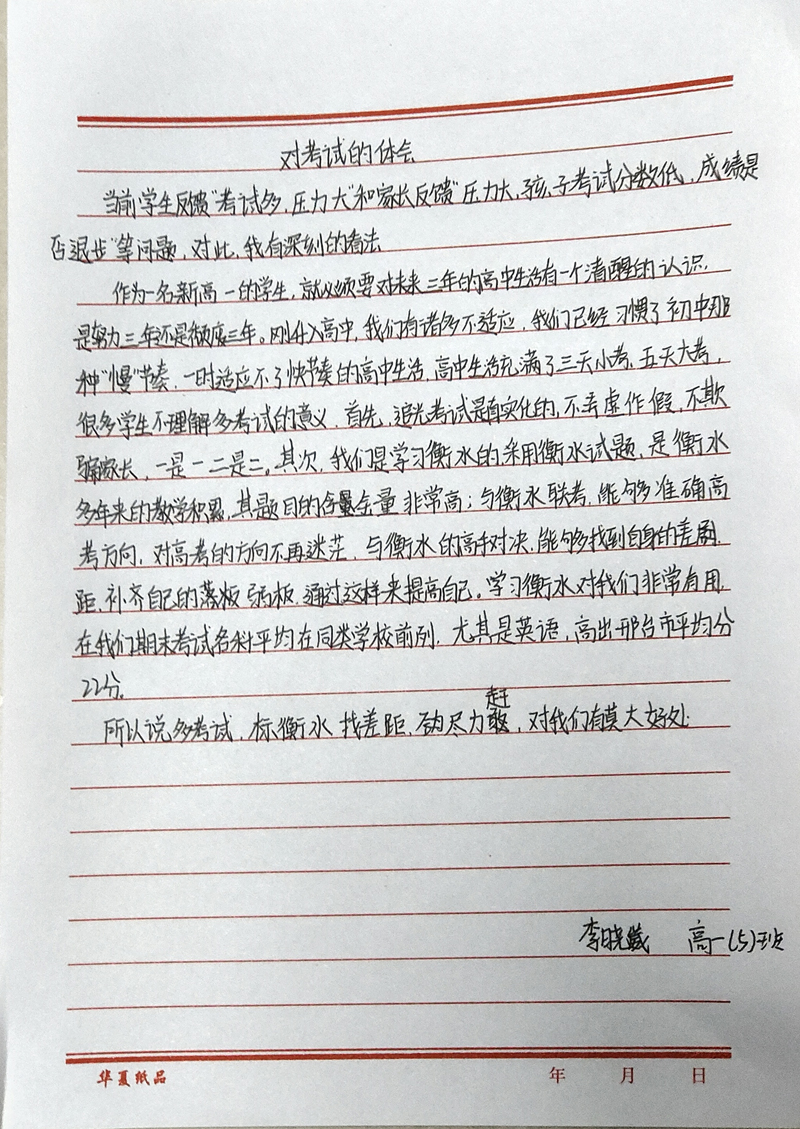 对考试的体会
当前学生反馈"考试多,压力大"和家长反馈"压力大,孩子考试分数低,成绩是
否退步"等问题,对此,我有深刻的看法
作为一名新高一的学生,就必须要对未来三年的高中生活有一个清醒的认识,
是努力三年还是彻底三年。刚升入高中,我们有诸多不适应,我们已经习惯了初中那
种"慢"节奏,一时适应不了快节奏的高中生活,高中生活充满了三天小考,五天大考,
很多学生不理解多考试的意义,首先,追光考试是真实化的,不弄虚作假,不欺
骗家长,一是一二是二。其次,我们是学习衡水的,采用衡水试题,是衡水
多年来的教学积累,其题目的含金量非常高;与衡水联考,能够准确高
考方向,对高考的方向不再迷茫,与衡水的高手对决,能够找到自身的差
距,补齐自己的落板弱板,通过这样来提高自己。学习衡水对我们非常有用,
在我们期末考试各科平均在同类学校前列,尤其是英语,高出邢台市平均分
22分。
所以说,多考试,标衡水找差距,尽力赶,对我们有莫大好处
李晓 高一(5)班
华夏纸品 年 月 日